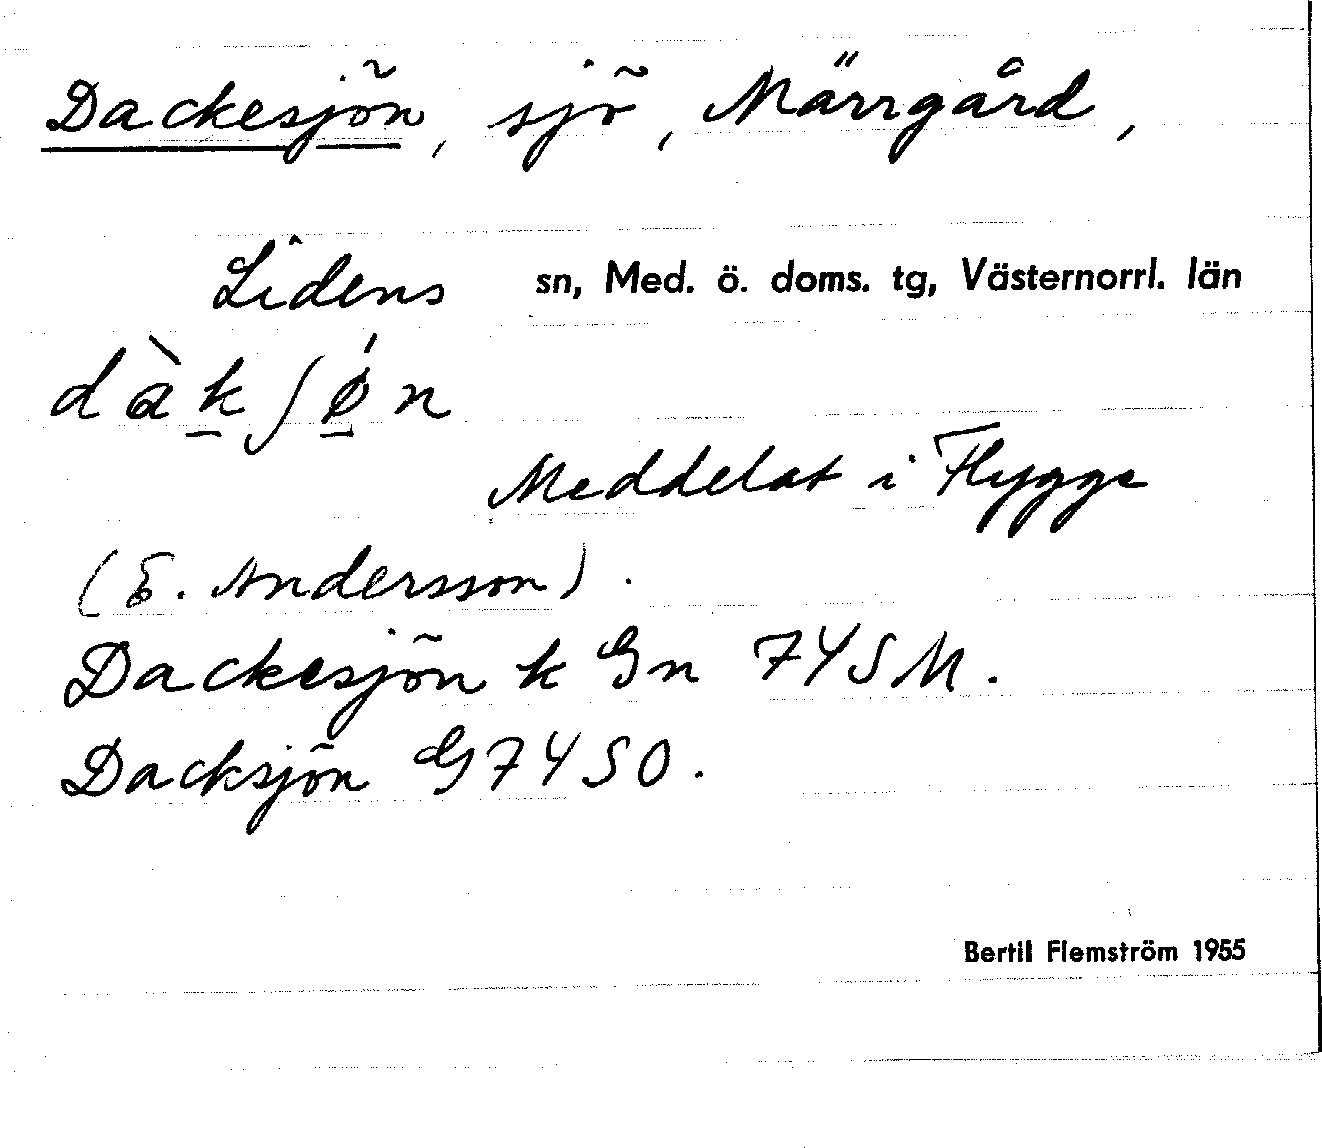 Dackesjön, sjö, Märrgård,
Lidens sn, Med. ö. doms. tg, Västernorrl. län
dàkʃǿn
Meddelat i Flygge
(E. Andersson).
Dackesjön k Gn 74SM.
Dacksjön G74SO.
Bertil Flemström 1955